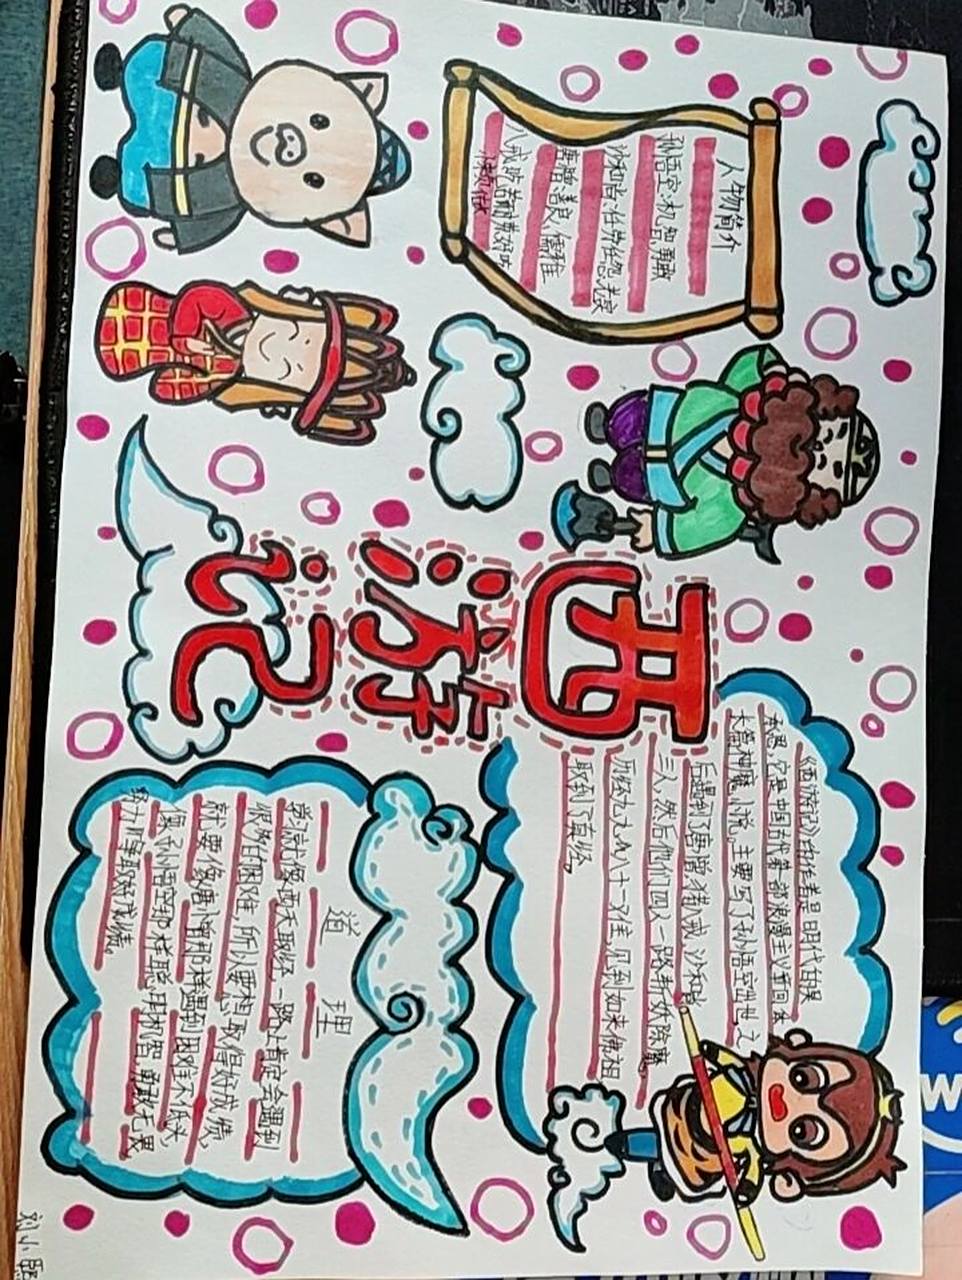 西游记
人物简介
孙悟空:机智勇敢
沙和尚:任劳任怨,老实
唐僧:善良,儒雅
八戒:好吃
懒做
《西游记》的作者是明代的吴
承恩,它是中国古代第一部浪漫主义章回体
长篇神魔小说。主要写了孙悟空出世,之
后遇到了唐僧、猪八戒、沙和尚
三人,然后他们四人一路降妖除魔,
历经九九八十一难,见到如来佛祖
取到了真经。
道理
学习就像西天取经,一路上肯定会遇到
很多的困难,所以要想取得好成绩,
就要像唐僧那样遇到困难不低头,
像孙悟空那样聪明机智,勇敢无畏
努力学取好成绩。
刘小
W